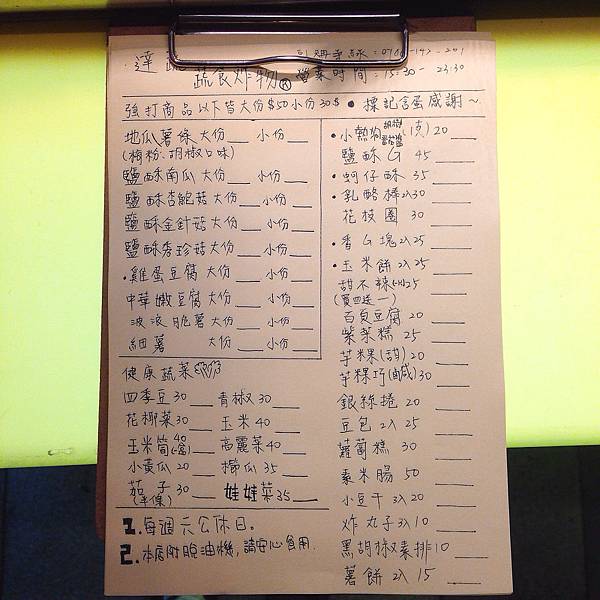 達
蔬食炸物 營業時間:15:30-23:30
強打商品以下皆大份$50小份30$ • 標記含蛋感謝~
地瓜薯條大份 小份
(梅粉.胡椒口味)
鹽酥南瓜大份 小份
鹽酥杏鮑菇大份 小份
鹽酥金針菇大份 小份
鹽酥秀珍菇大份 小份
•雞蛋豆腐大份 小份
中華嫩豆腐大份 小份
波浪脆薯大份 小份
細薯 大份 小份
健康蔬菜
四季豆30 青椒30
花椰菜30 玉米40
玉米筍40 高麗菜40
小黃瓜20 櫛瓜35
茄子30 娃娃菜35
(半條)
1.每週六公休日。
2.本店附脫油機,請安心食用.
•小熱狗 20
鹽酥G 45
•蚵仔酥 35
•乳酪棒2入30
花枝圈 30
•香G塊2入25
•玉米餅2入25
甜不辣 25
(買四送一)
百頁豆腐20
紫菜糕 25
芋粿(甜)20
芋粿巧(鹹)30
銀絲捲 20
豆包2入25
蘿蔔糕 30
素米腸 50
小豆干3入20
炸丸子3入10
黑胡椒素排10
薯餅2入15